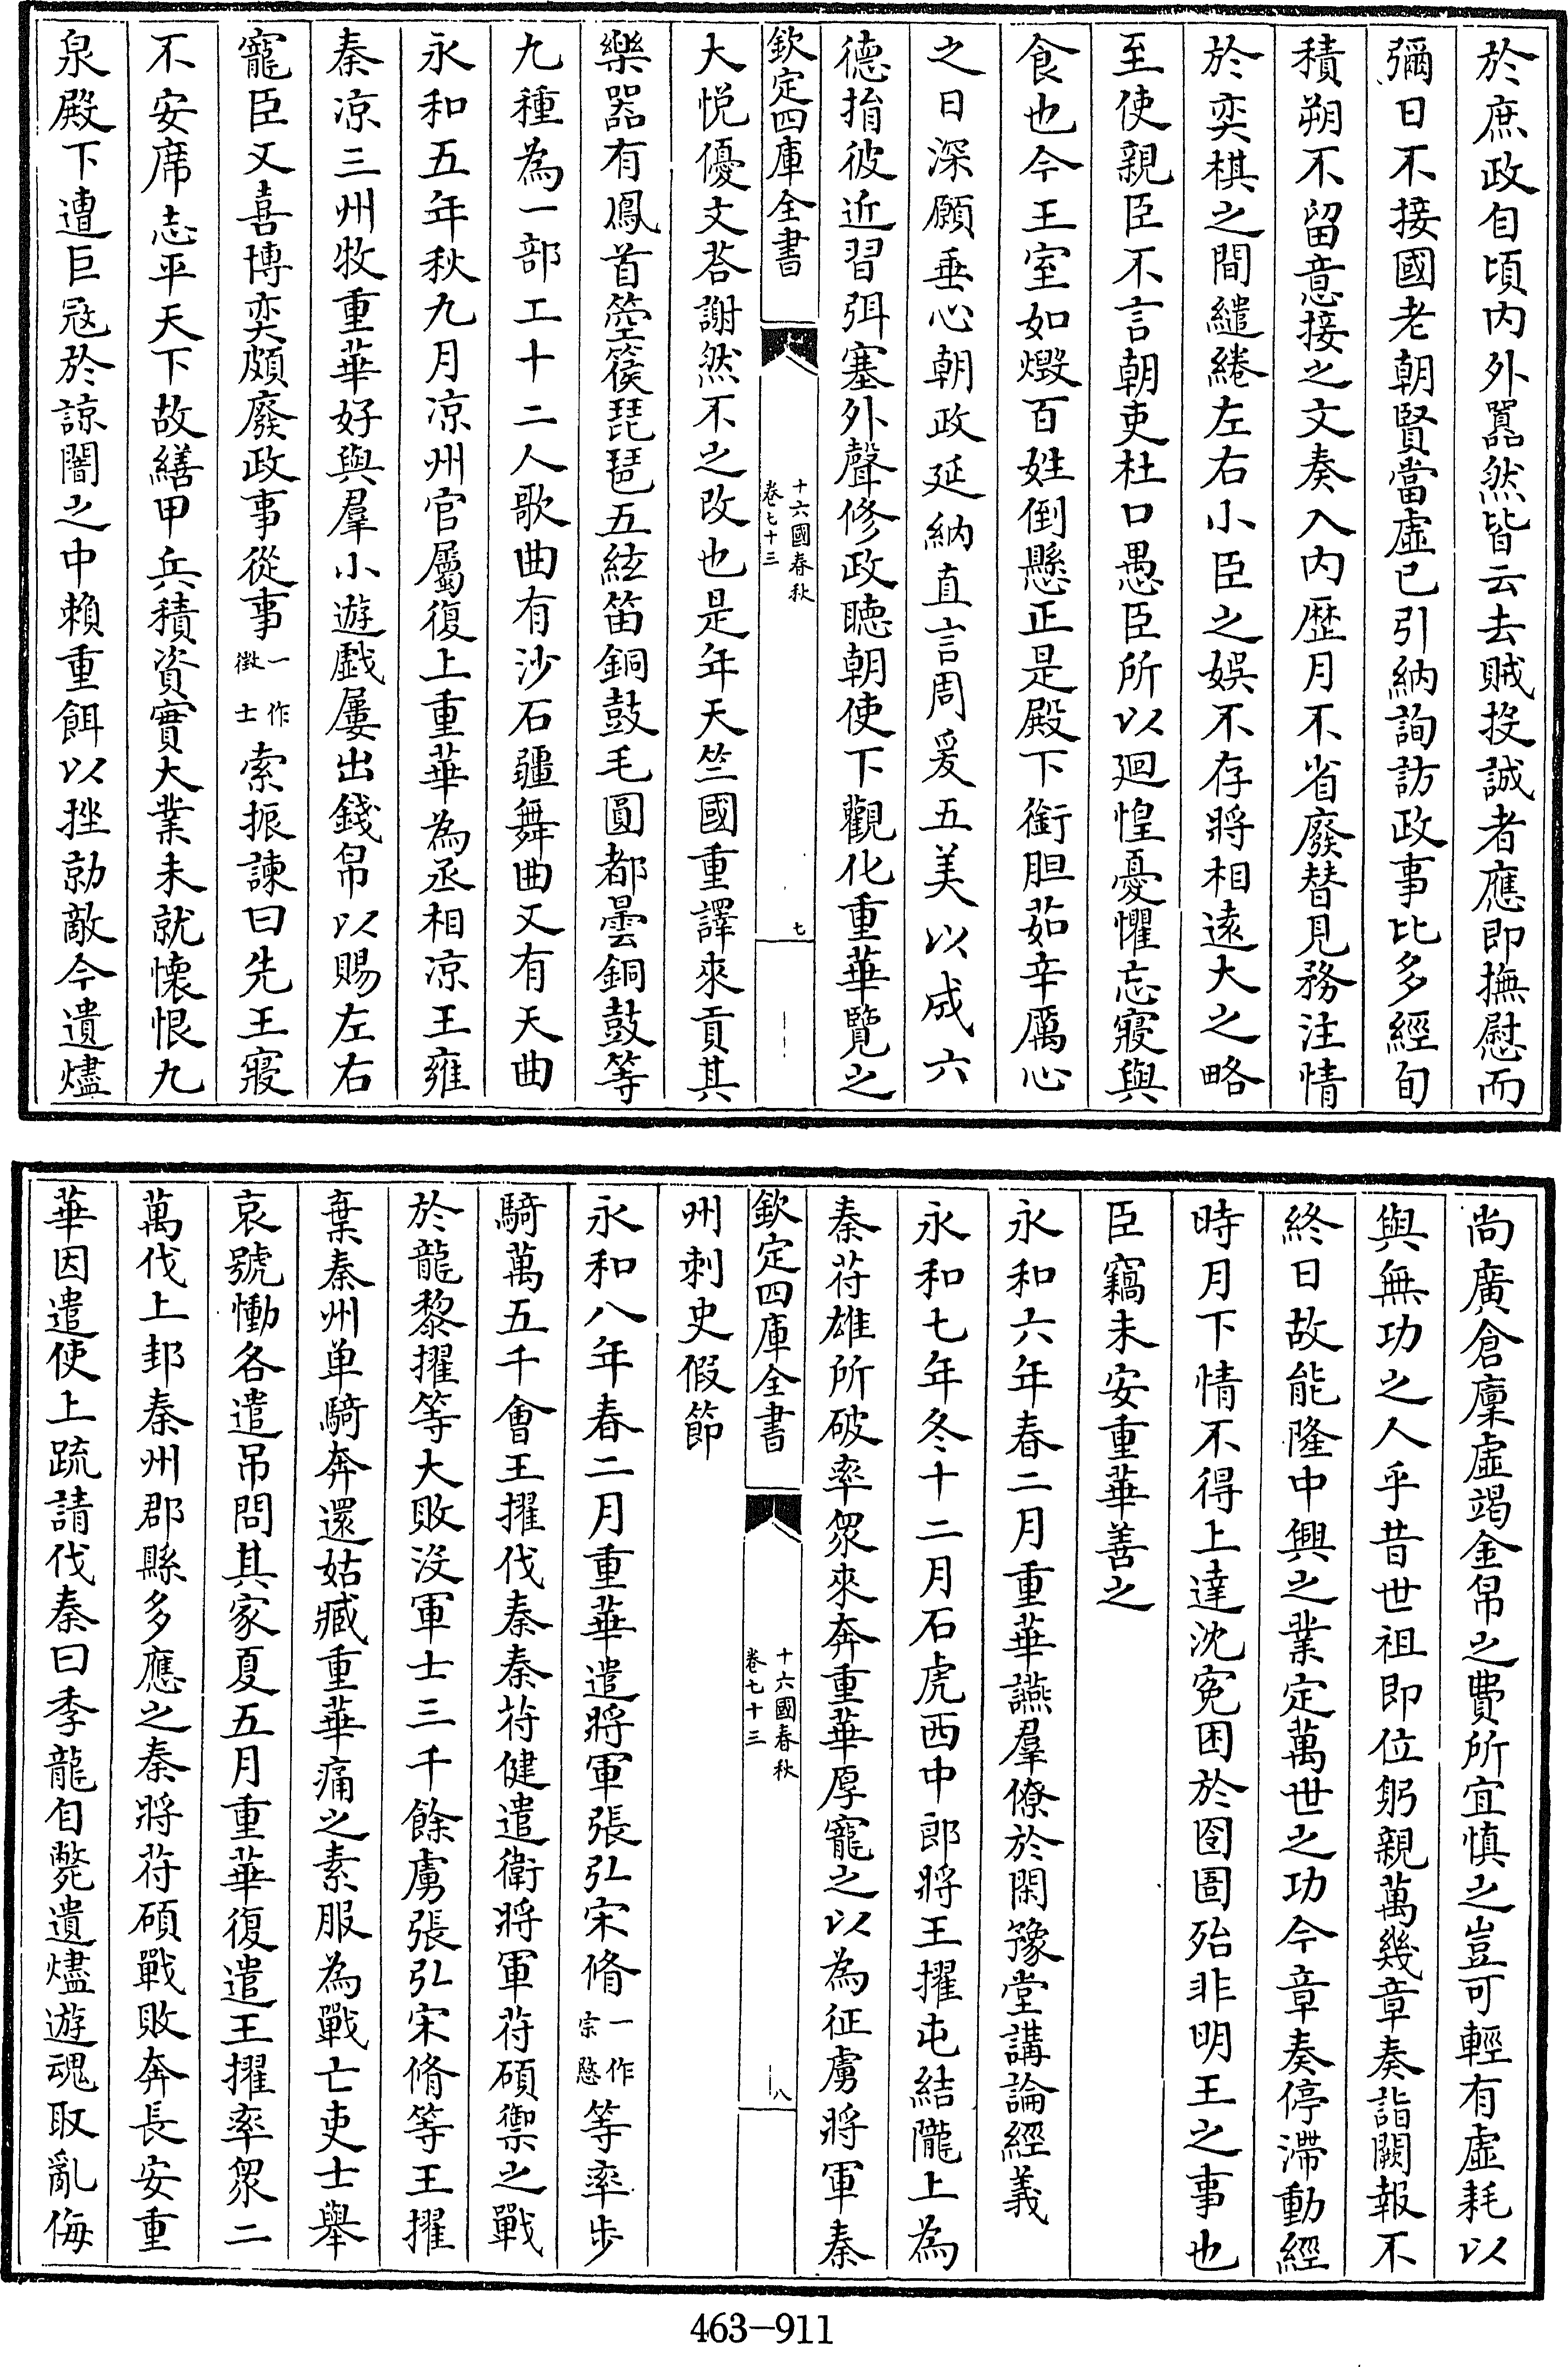 於庶政自頃内外囂然皆云去賊投誠者應即撫慰而
彌日不接國老朝賢當虛已引納詢訪政事比多經旬
積朔不留意接之文奏入内歴月不省廢替見務注情
於奕棋之間繾綣左右小臣之娛不存將相遠大之略
至使親臣不言朝吏杜口愚臣所以迴惶憂懼忘寢與
食也今王室如燬百姓倒懸正是殿下銜胆茹辛厲心
之日深願垂心朝政延納直言周爰五美以成六
德捐彼近習弭塞外聲修政聽朝使下觀化重華覽之
欽定四庫全書
十六國春秋
卷七十三
七
大悦優文荅謝然不之改也是年天竺國重譯來貢其
樂器有鳳首箜篌琵琶五絃笛銅鼓毛圓都曇銅鼓等
九種為一部工十二人歌曲有沙石疆舞曲又有天曲
永和五年秋九月凉州官屬復上重華為丞相凉王雍
秦凉三州牧重華好與羣小遊戲屢出錢帛以賜左右
寵臣又喜博奕頗廢政事從事一作徴士索振諫曰先王寢
不安席志平天下故繕甲兵積資實大業未就懷恨九
泉殿下遭巨寇於諒闇之中賴重餌以挫勍敵今遺燼
尚廣倉廩虛竭金帛之費所宜慎之豈可輕有虛耗以
與無功之人乎昔世祖即位躬親萬幾章奏詣闕報不
終日故能隆中興之業定萬世之功今章奏停滯動經
時月下情不得上達沈寃困於囹圄殆非明王之事也
臣竊未安重華善之
永和六年春二月重華讌羣僚於閑豫堂講論經義
永和七年冬十二月石虎西中郎將王擢屯結隴上為
秦苻雄所破率衆來奔重華厚寵之以為征虜將軍秦
欽定四庫全書
十六國春秋
卷七十三
八
州刺史假節
永和八年春二月重華遣將軍張弘宋脩一作宗愍等率步
騎萬五千會王擢伐秦秦苻健遣衛將軍苻碩禦之戰
於龍黎擢等大敗沒軍士三千餘虜張弘宋脩等王擢
棄秦州单騎奔還姑臧重華痛之素服為戰亡吏士舉
哀號慟各遣吊問其家夏五月重華復遣王擢率衆二
萬伐上邽秦州郡縣多應之秦將苻碩戰敗奔長安重
華因遣使上疏請伐秦曰季龍自斃遺燼遊魂取亂侮
463-911